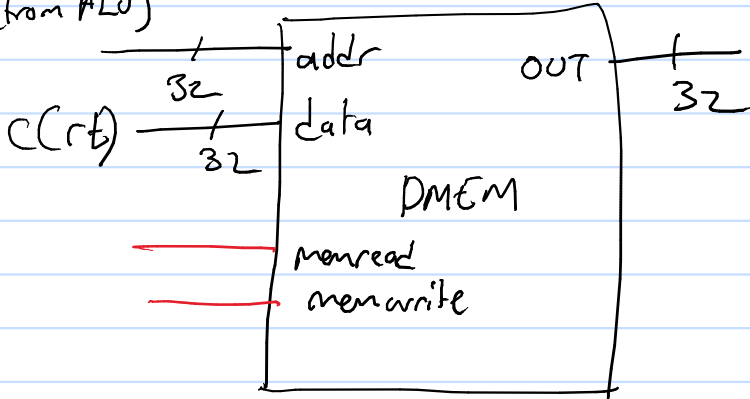 (from ALU)
addr
OUT
32
32
C(rt)
data
32
DMEM
memread
memwrite